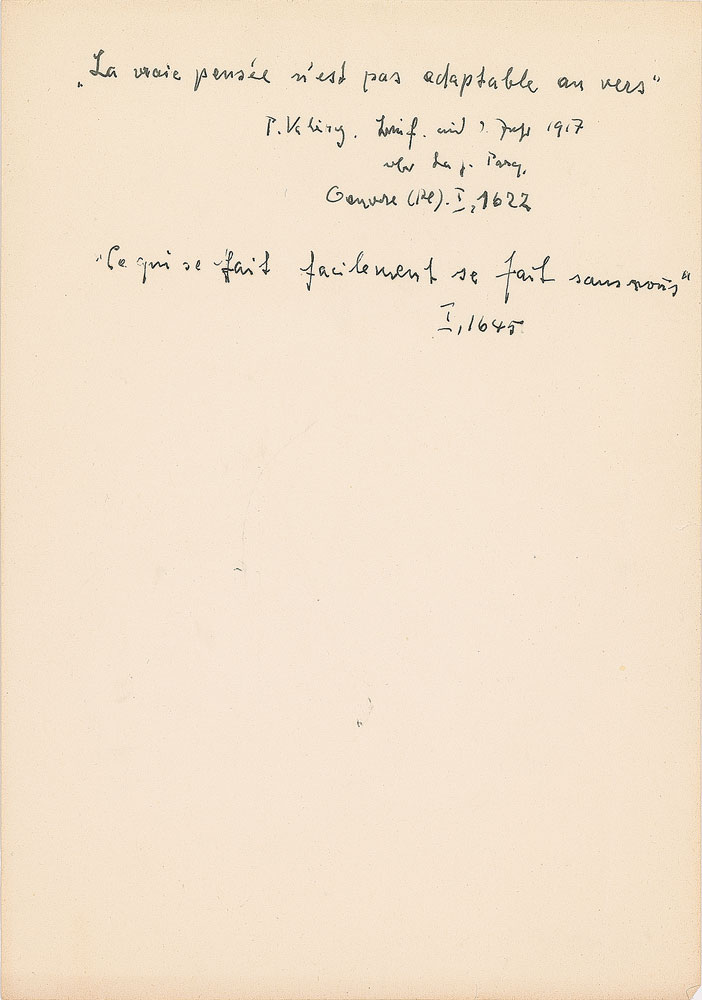 „La vraie pensée n'est pas adaptable au vers“
P. Valéry. 1917
La j. Parq.
Oeuvre (Pl). I, 1622
"Ce qui se fait facilement se fait sans nous"
I, 1645